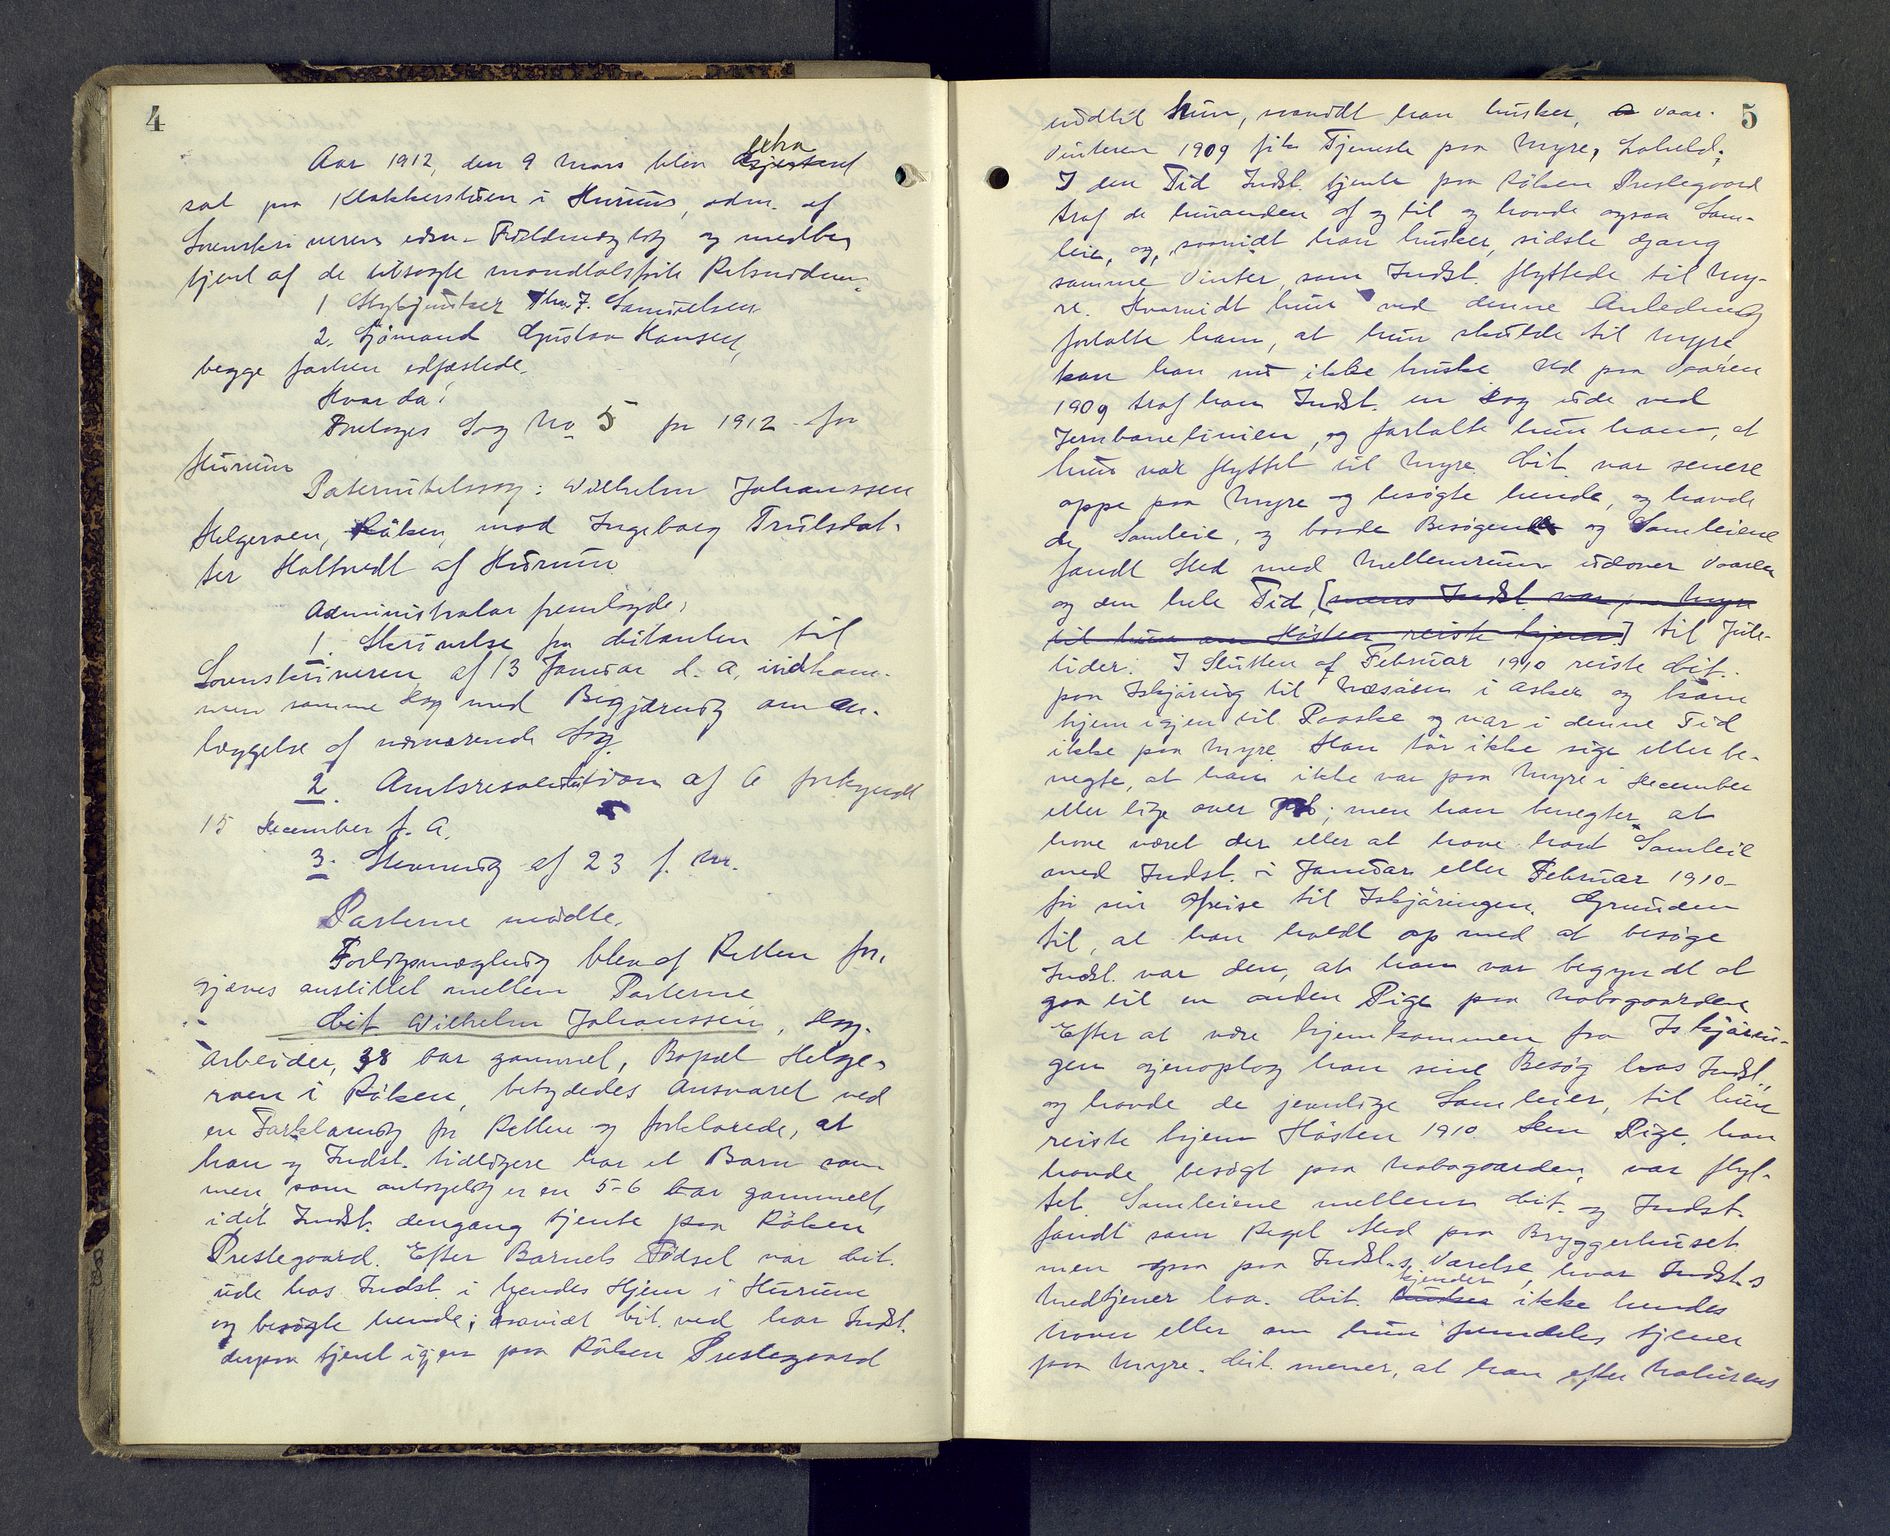 4
Aar 1912, den 9 Mars blev extra
sat paa Klokkerstuen i Hurum, adm. af
Sorenskriverens edsv. Fuldmægtig og medbe
tjent af de tilsagte mandtalsførte Retsvidner:
1 Skytjunker Thv. J. Samuelsen
2. Sjømand Gustav Hansen,
begge forhen edfæstede.
Hvor da:
Foretoges Sag No 5 for 1912 for
Hurum
Paternitetssag: Wilhelm Johanssen
Helgeroen, Røken, mod Ingeborg Trulsdat-
ter Holtnedt af Hurum
Administrator fremlagde:
1. Skrivelse fra Citanten til
Sorenskriveren af 13 Januar d. A, indkom-
men samme Dag med Begjæring om An-
læggelse af nærværende Sag
2. Amtsresolution af 6 forkyndt
15 December f. A.
3. Stevning af 23 f. M.
Parterne mødte.
Forligsmægling blev af Retten for-
gjæves anstillet mellem Parterne
Cit Wilhelm Johanssen, Dag-
arbeider, 38 Aar gammel, Bopæl Helge-
roen i Røken, betydedes Ansvaret ved
en Forklaring for Retten og forklarede, at
han og Indst. tidligere har et Barn sam-
men som antagelig er en 5-6 Aar gammelt,
idet Indst. dengang tjente paa Røken
Prestegaard. Efter Barnets Fødsel var Cit.
ude hos Indst. i hendes Hjem i Hurum
og besøgte hende; saavidt Cit. ved har Indst.
derpaa tjent igjen paa Røken Prestegaard
5
indtil hun, saavidt han husker, Vaar-
vinteren 1909 fik Tjeneste paa Myre,
I den Tid Indst. tjente paa Røken Prestegaard
traf de hinanden af og til og havde ogsaa Sam-
leie, og, saavidt han husker, sidste Gang
samme Vinter, som Indst. flyttede til My-
re. Hvorvidt hun ved denne Anledning
fortalte ham, at hun skulde til Myre
kan han nu ikke huske. Ud paa Vaaren
1909 traf han Indst. en Dag ude ved
Jernbanelinien, og fortalte hun ham, at
hun var flyttet til Myre. Cit. var senere
oppe paa Myre og besøgte hende, og havde
de Samleie, og baade Besøgene og Samleiene
fandt Sted med Mellemrum udover Vaaren
og den hele Tid [mens Indst. var paa Myre
til hun om Høsten reiste hjem] til Jule-
tider. I Slutten af Februar 1910 reiste Cit.
paa Iskjøring til Næsøen i Asker og kom
hjem igjen til Paaske og var i denne Tid
ikke paa Myre. Han tør ikke sige eller be-
negte, at han ikke var paa Myre i December
eller lige over Jul; men han benegter at
have været der eller at have havt Samleie
med Indst. i Januar eller Februar 1910
før sin Afreise til Iskjøringen. Grunden
til, at han holdt op med at besøge
Indst. var den, at han var begyndt at
gaa til en anden Pige paa Nabogaarden
Efter at være hjemkommen fra Iskjørin-
gen gjenoptog han sine Besøg hos Indst.,
og havde de jevnlige Samleier, til hun
reiste hjem Høsten 1910. Den Pige, han
havde besøgt paa Nabogaarden, var flyt-
tet. Samleiene mellem Cit. og Indst.
fandt som Regel Sted paa Bryggerhuset
men ogsaa paa Indst.s Værelse, hvor Indst.s
Medtjener laa. Cit. husker kjender ikke hendes
Navn eller om hun fremdeles tjener
paa Myre. Cit. mener, at han efter Naturens